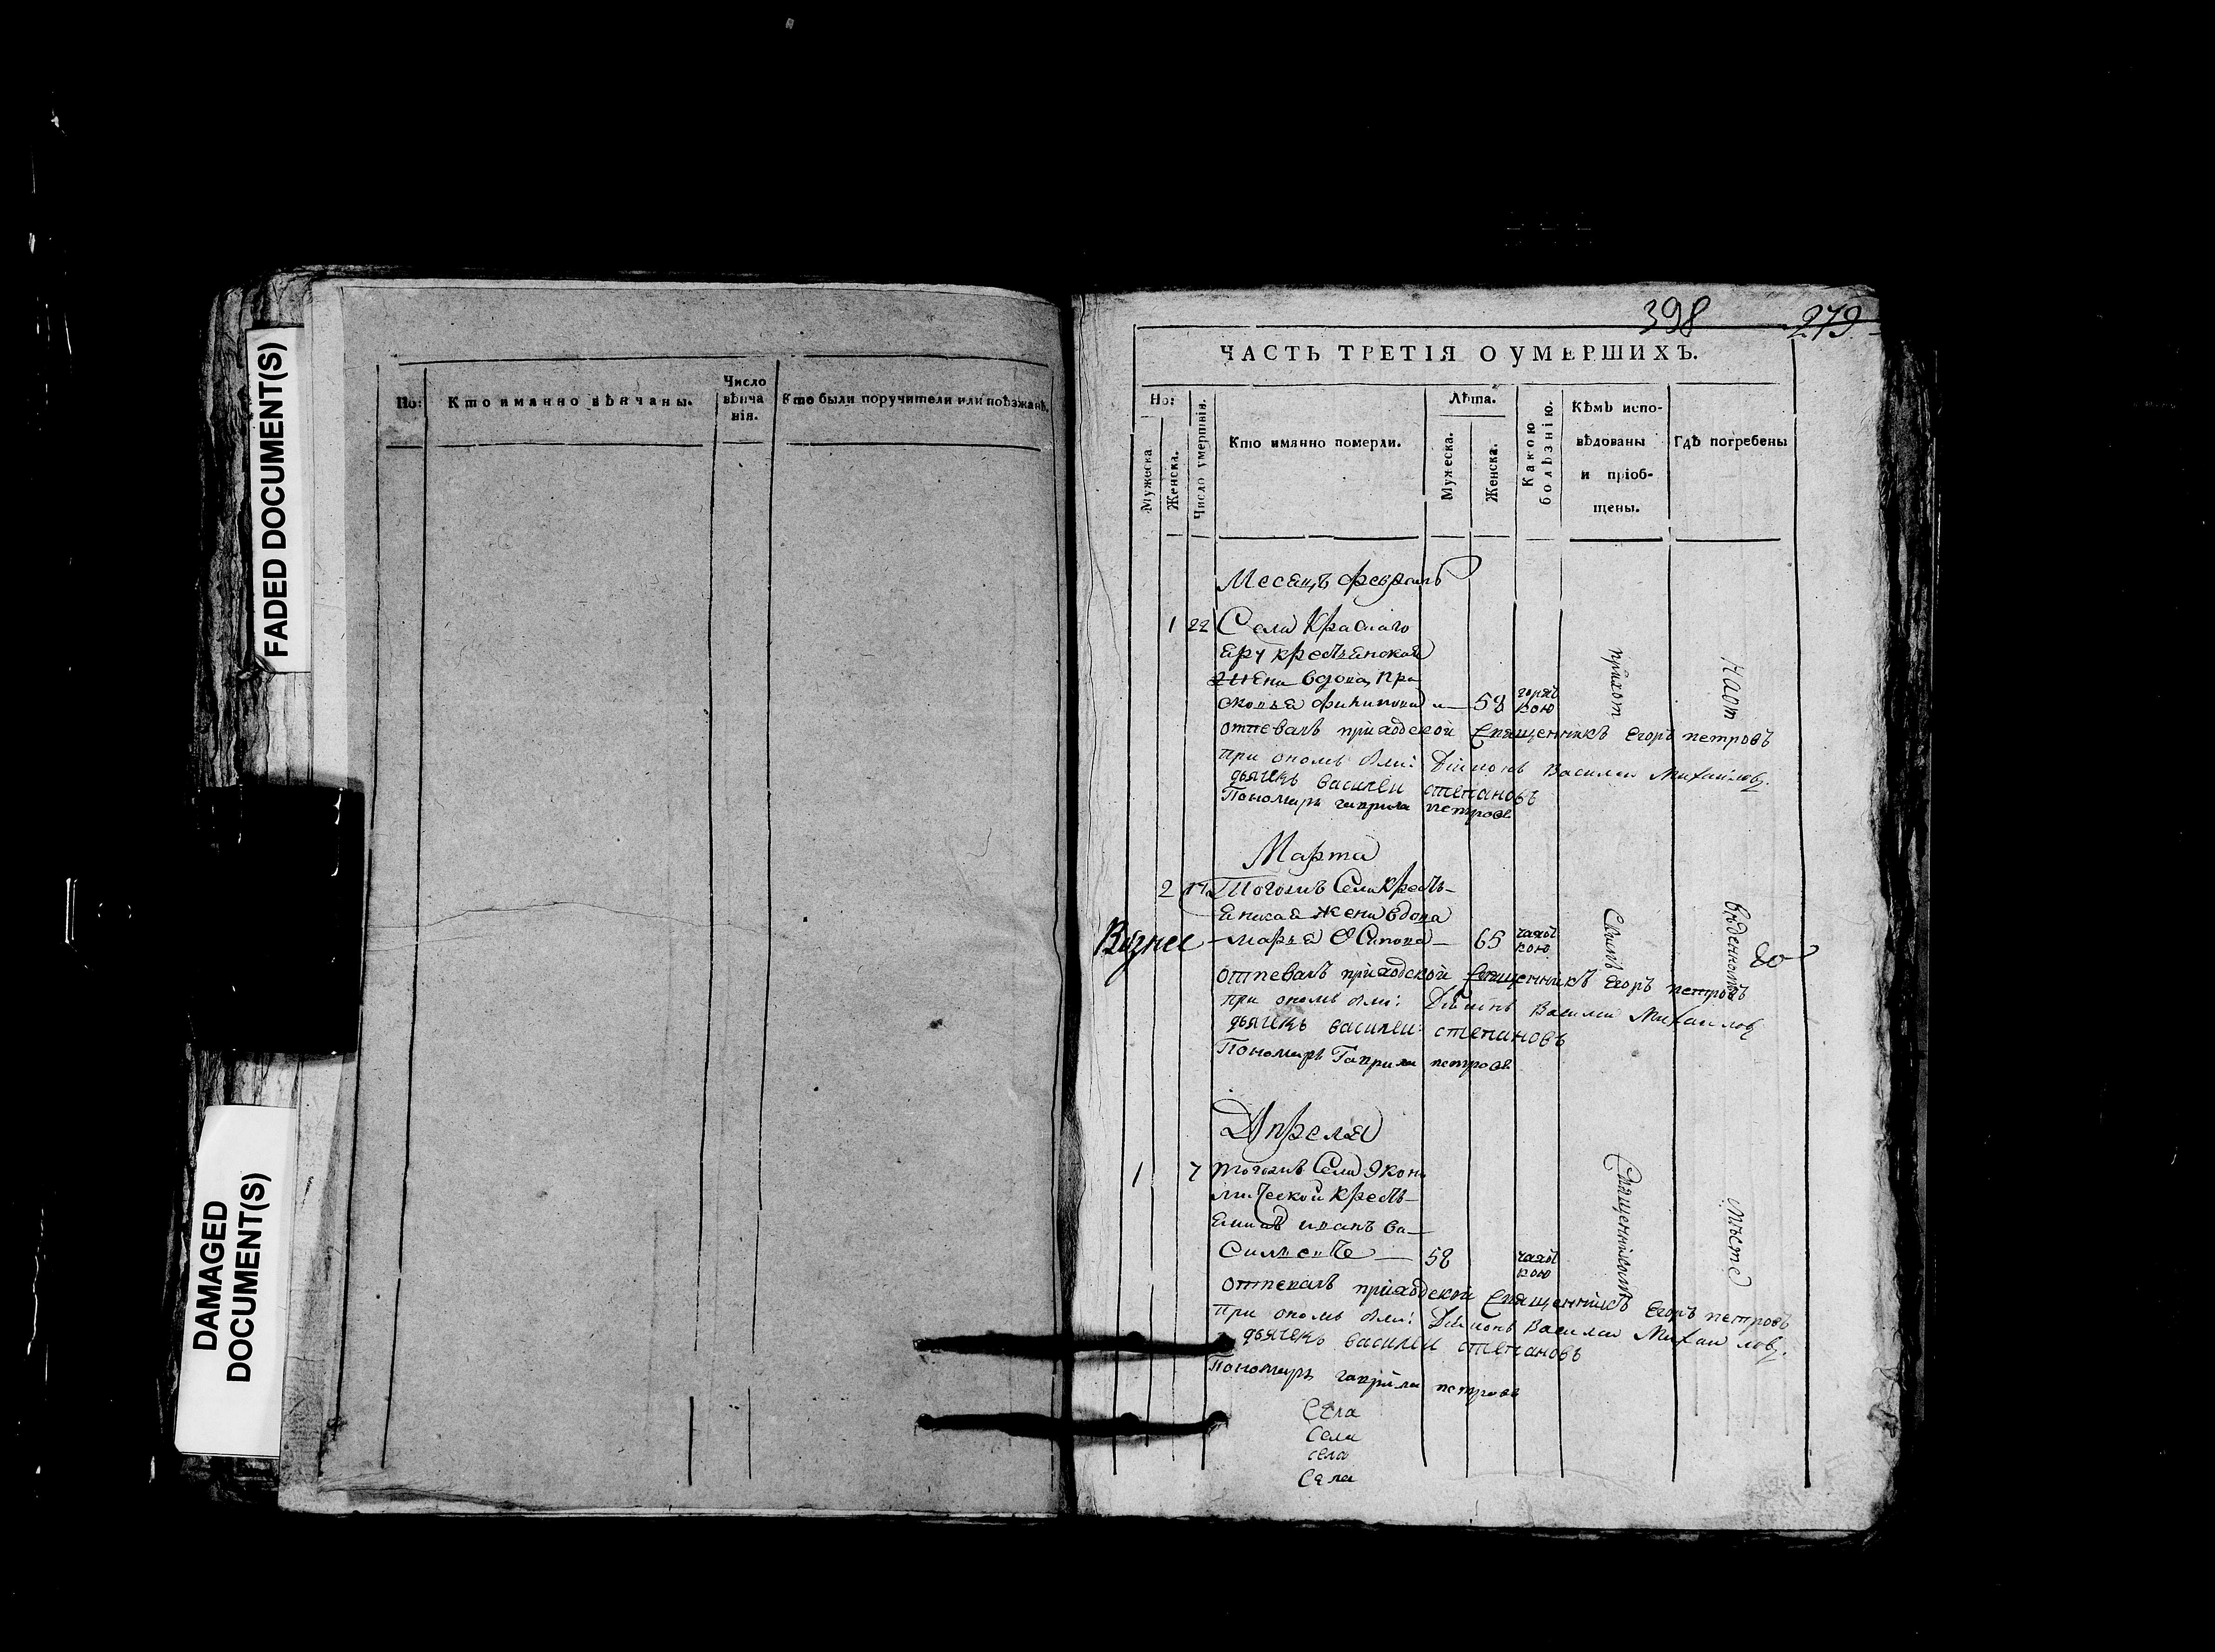 FADED DOCUMENT(S)
DAMAGED
DOCUMENT(S)
Но:
Кто имянно вѣнчаны.
Число
вѣнча
нія.
Кто были поручители или поѣзжанѣ.
398
279
ЧАСТЬ ТРЕТІЯ О УМЕРШИХЪ.
Но:
Мужеска
Женска.
Число умертвія.
Кто имянно померли.
Лѣта.
Мужеска.
Женска.
Какою
болѣзнію.
Кѣмъ испо-
вѣдованы
и пріоб-
щены.
Гдѣ погребены
Месецъ февраль
1 22 Села Краснаго
яру крестьянской
жена вдова Пра
сковья 58 горяч
кою
отпевалъ приходской Священникъ Егоръ петровъ
при ономъ были: Дьяконъ Василей Михайловъ
дьячекъ василеи степановъ
Пономарь гаврила петровъ
Марта
2 Тогожъ Села кресть-
янская жена вдова
марья Осипова 65 чахот
кою
отпевалъ приходской Священникъ Егоръ петровъ
при ономъ были: Дьяконъ Василеи Михаиловъ
дьячекъ василеи степановъ
Пономарь Гаврила петровъ
Апреля
1 7 тогожъ Села Экони
мической кресть-
янинъ иванъ ва
сильевъ 58 чахот
кою
отпевалъ приходской Священникъ Егоръ петровъ
При ономъ были: Дьяконъ Василеи Михаиловъ
дьячекъ василеи степановъ
Пономарь гаврила петровъ
Села
Села
села
Села
приход
Скимъ
Священникомъ
Наот
веденномъ
мѣсте